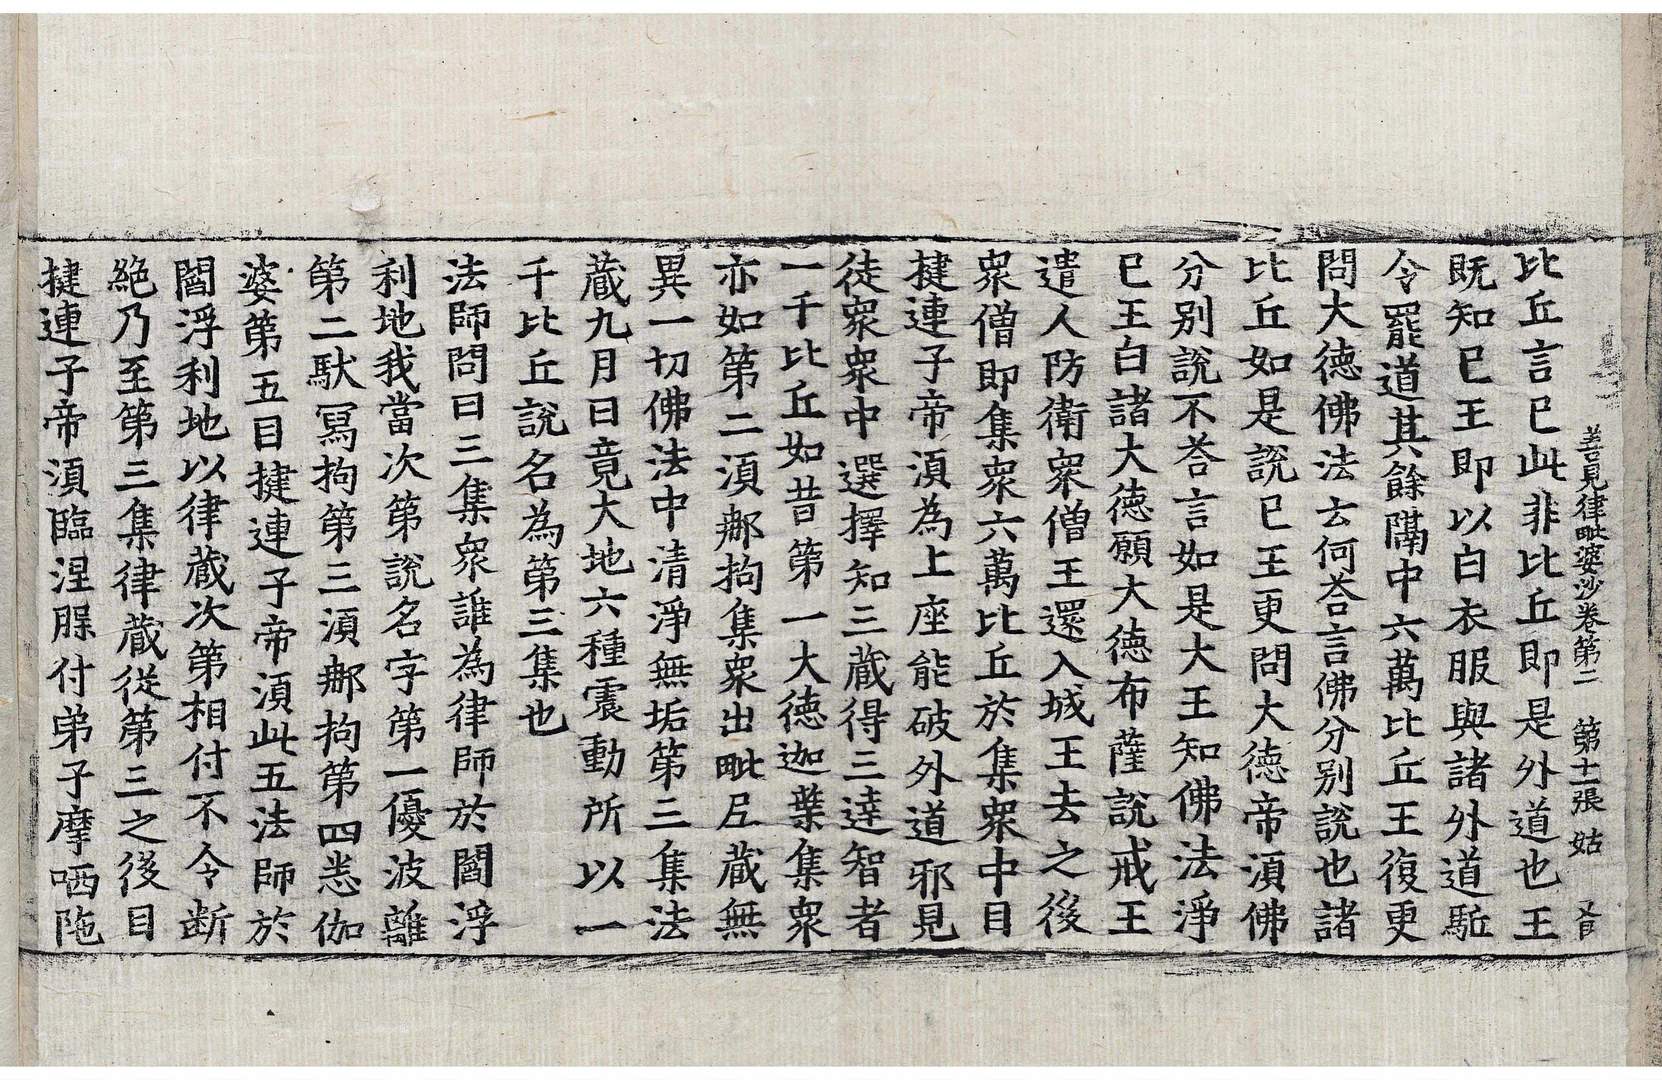 善見律毗婆沙卷第二 第十一張 姑
比丘言已此非比丘即是外道也王
既知已王即以白衣服與諸外道駈
令罷道其餘隔中六萬比丘王復更
問大德佛法云何荅言佛分別說也諸
比丘如是說已王更問大德帝湏佛
分別說不荅言如是大王知佛法淨
已王白諸大德願大德布薩說戒王
遣人防衛衆僧王還入城王去之後
衆僧即集衆六萬比丘於集衆中目
揵連子帝湏為上座能破外道邪見
徒衆衆中選擇知三藏得三達智者
一千比丘如昔第一大德迦葉集衆
亦如第二湏㮈拘集衆出毗尼藏無
異一切佛法中清淨無垢第三集法
藏九月日竟大地六種震動所以一
千比丘說名為第三集也
法師問曰三集衆誰為律師於閻浮
利地我當次第說名字第一優波離
第二馱寫拘第三湏㮈拘第四悉伽
婆第五目揵連子帝湏此五法師於
閻浮利地以律藏次第相付不令断
絶乃至第三集律藏從第三之後目
揵連子帝湏臨涅腂付弟子摩哂陁